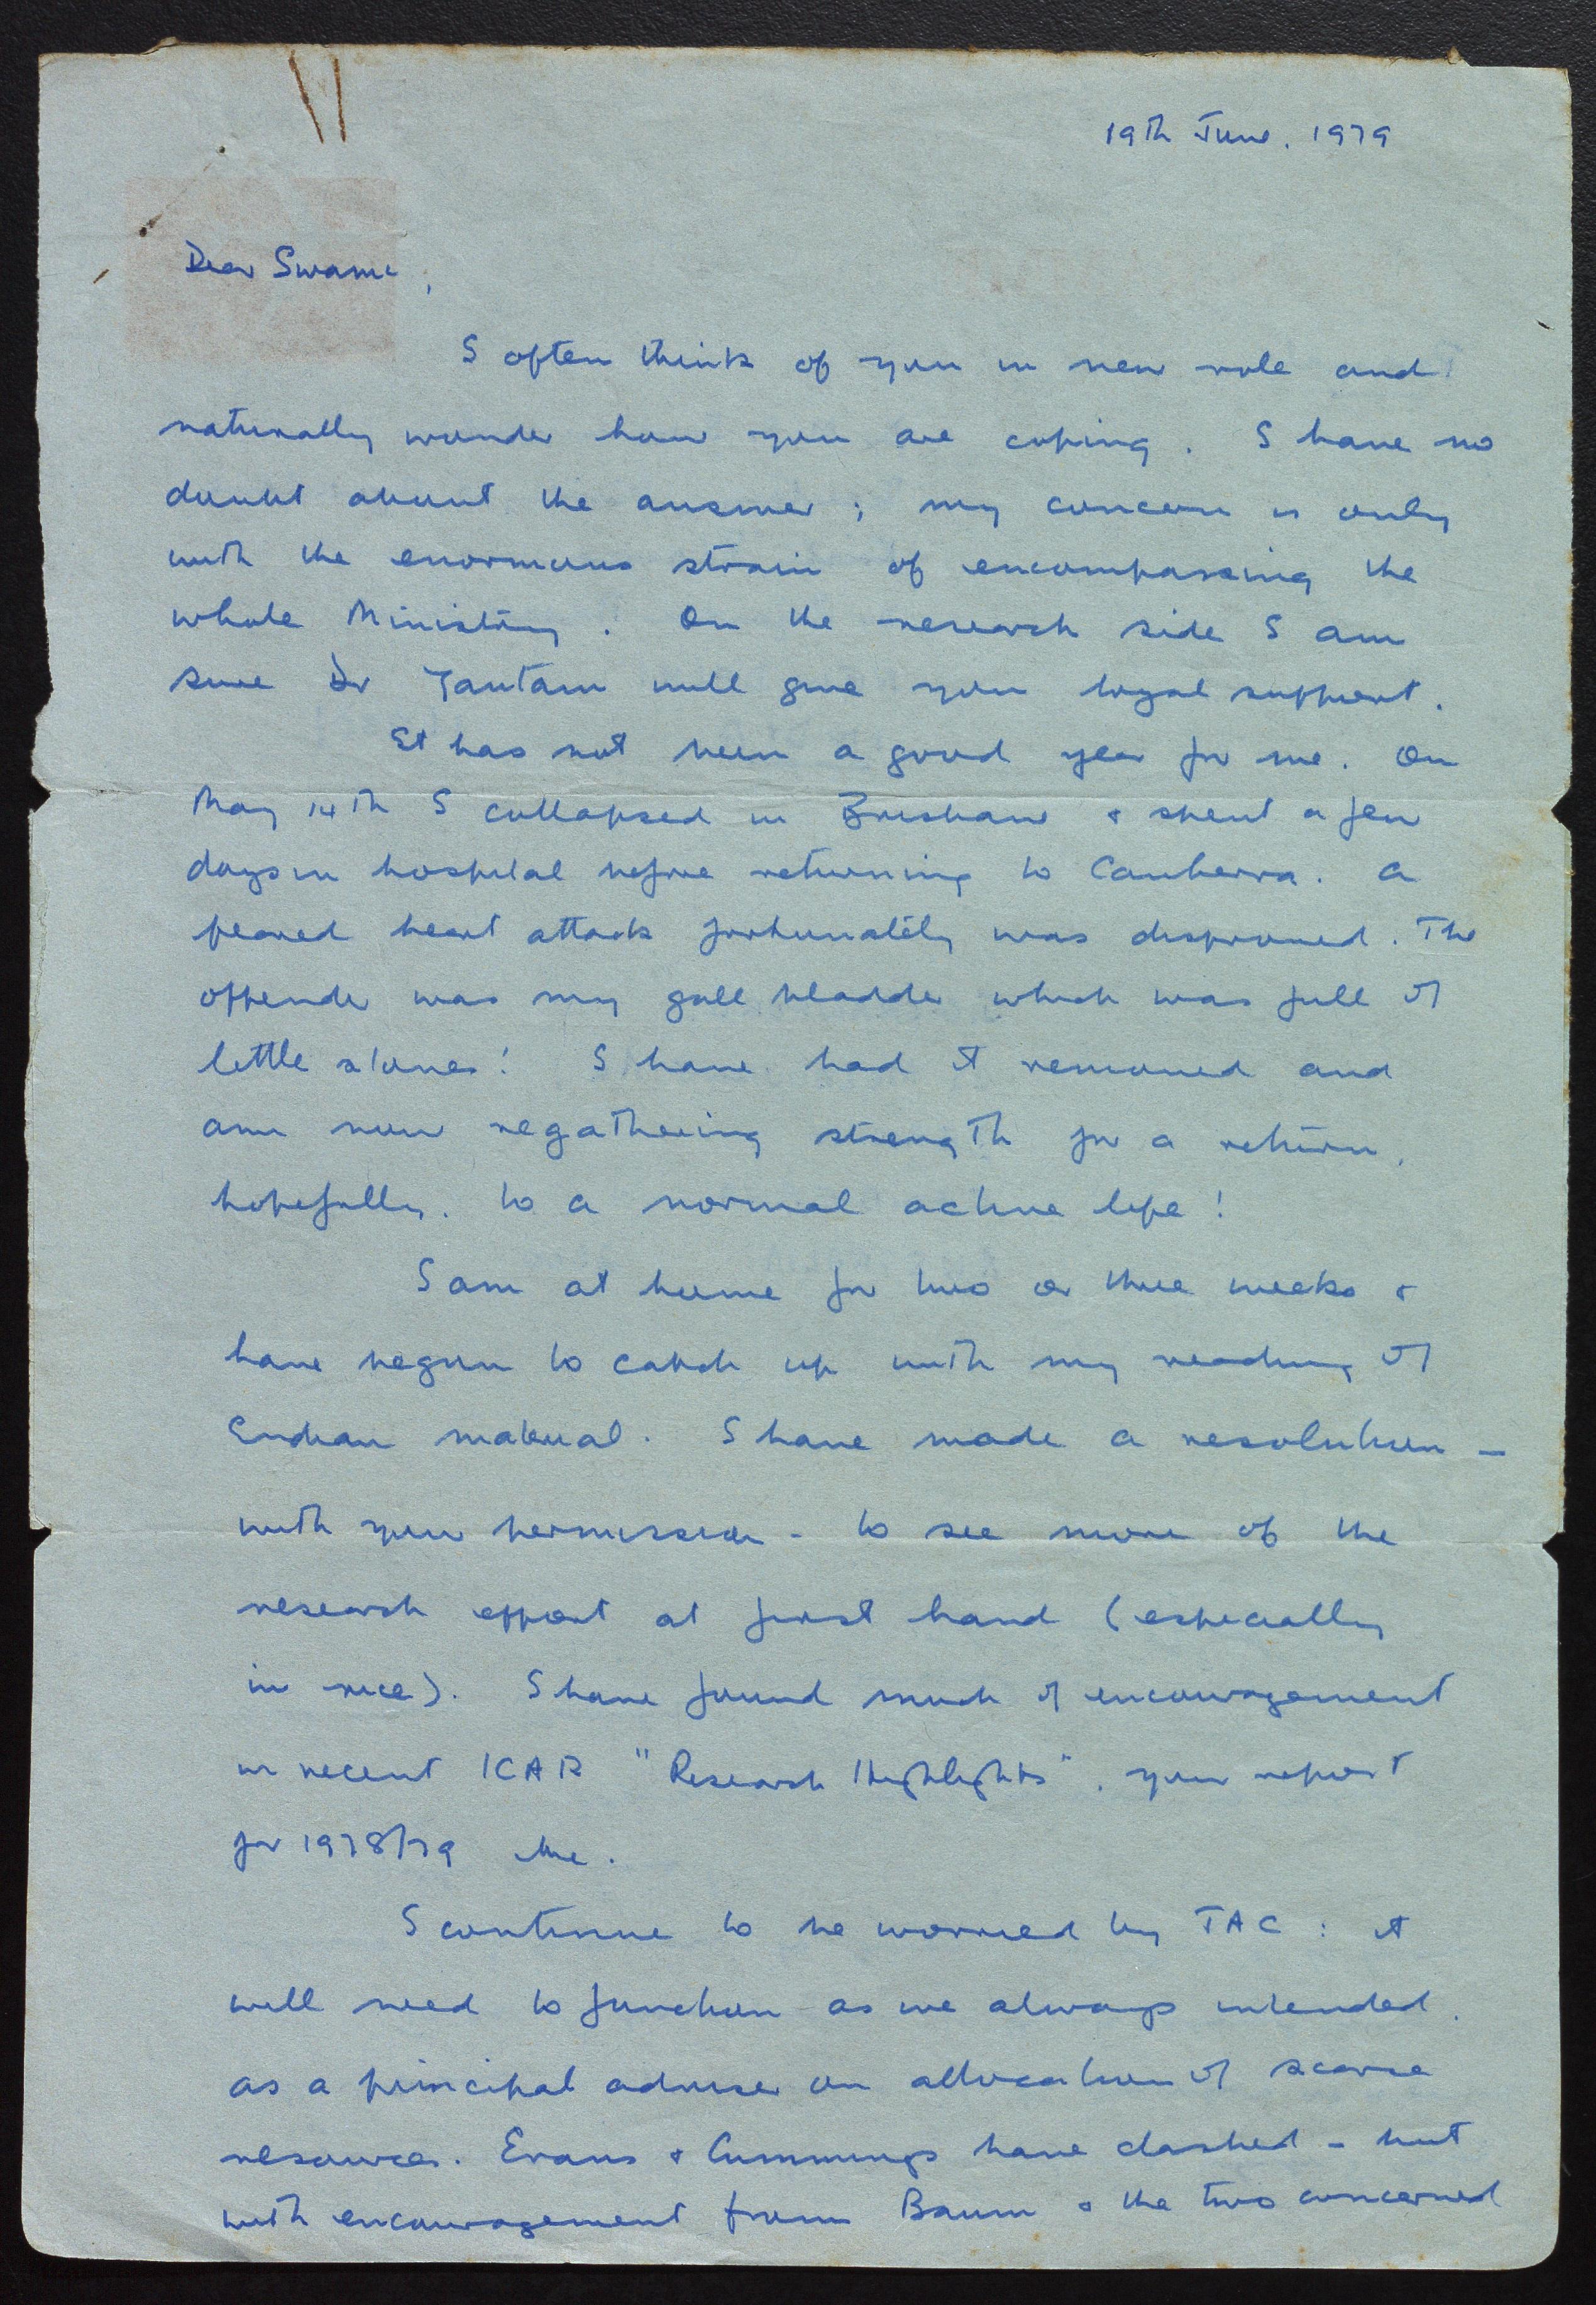 19th June. 1979
Dear Swami,
I often think of you in new role and
naturally wonder how you are coping. I have no
doubt about the answer; my concern is only
with the enormous strain of encompassing the
whole Ministry. On the research side I am
sure Dr Gautam will give you loyal support.
It has not been a good year for me. On
May 14th I collapsed in Brisbane & spent a few
days in hospital before returning to Canberra. A
feared heart attack fortunately was disproved. The
offender was my gall bladder which was full of
little stones! I have had it removed and
am now regathering strength for a return,
hopefully, to a normal active life!
I am at home for two or three weeks &
have begun to catch up with my reading of
Indian material. I have made a resolution -
with your permission - to see more of the
research effort at first hand (especially
in rice). I have found much of encouragement
in recent ICAR "Research Highlights", your report
for 1978/79 etc.
I continue to be worried by TAC: it
will need to function as we always intended,
as a principal adviser on allocation of scarce
resources. Evans & Cummings have clashed - but
with encouragement from Baum & the two concerned